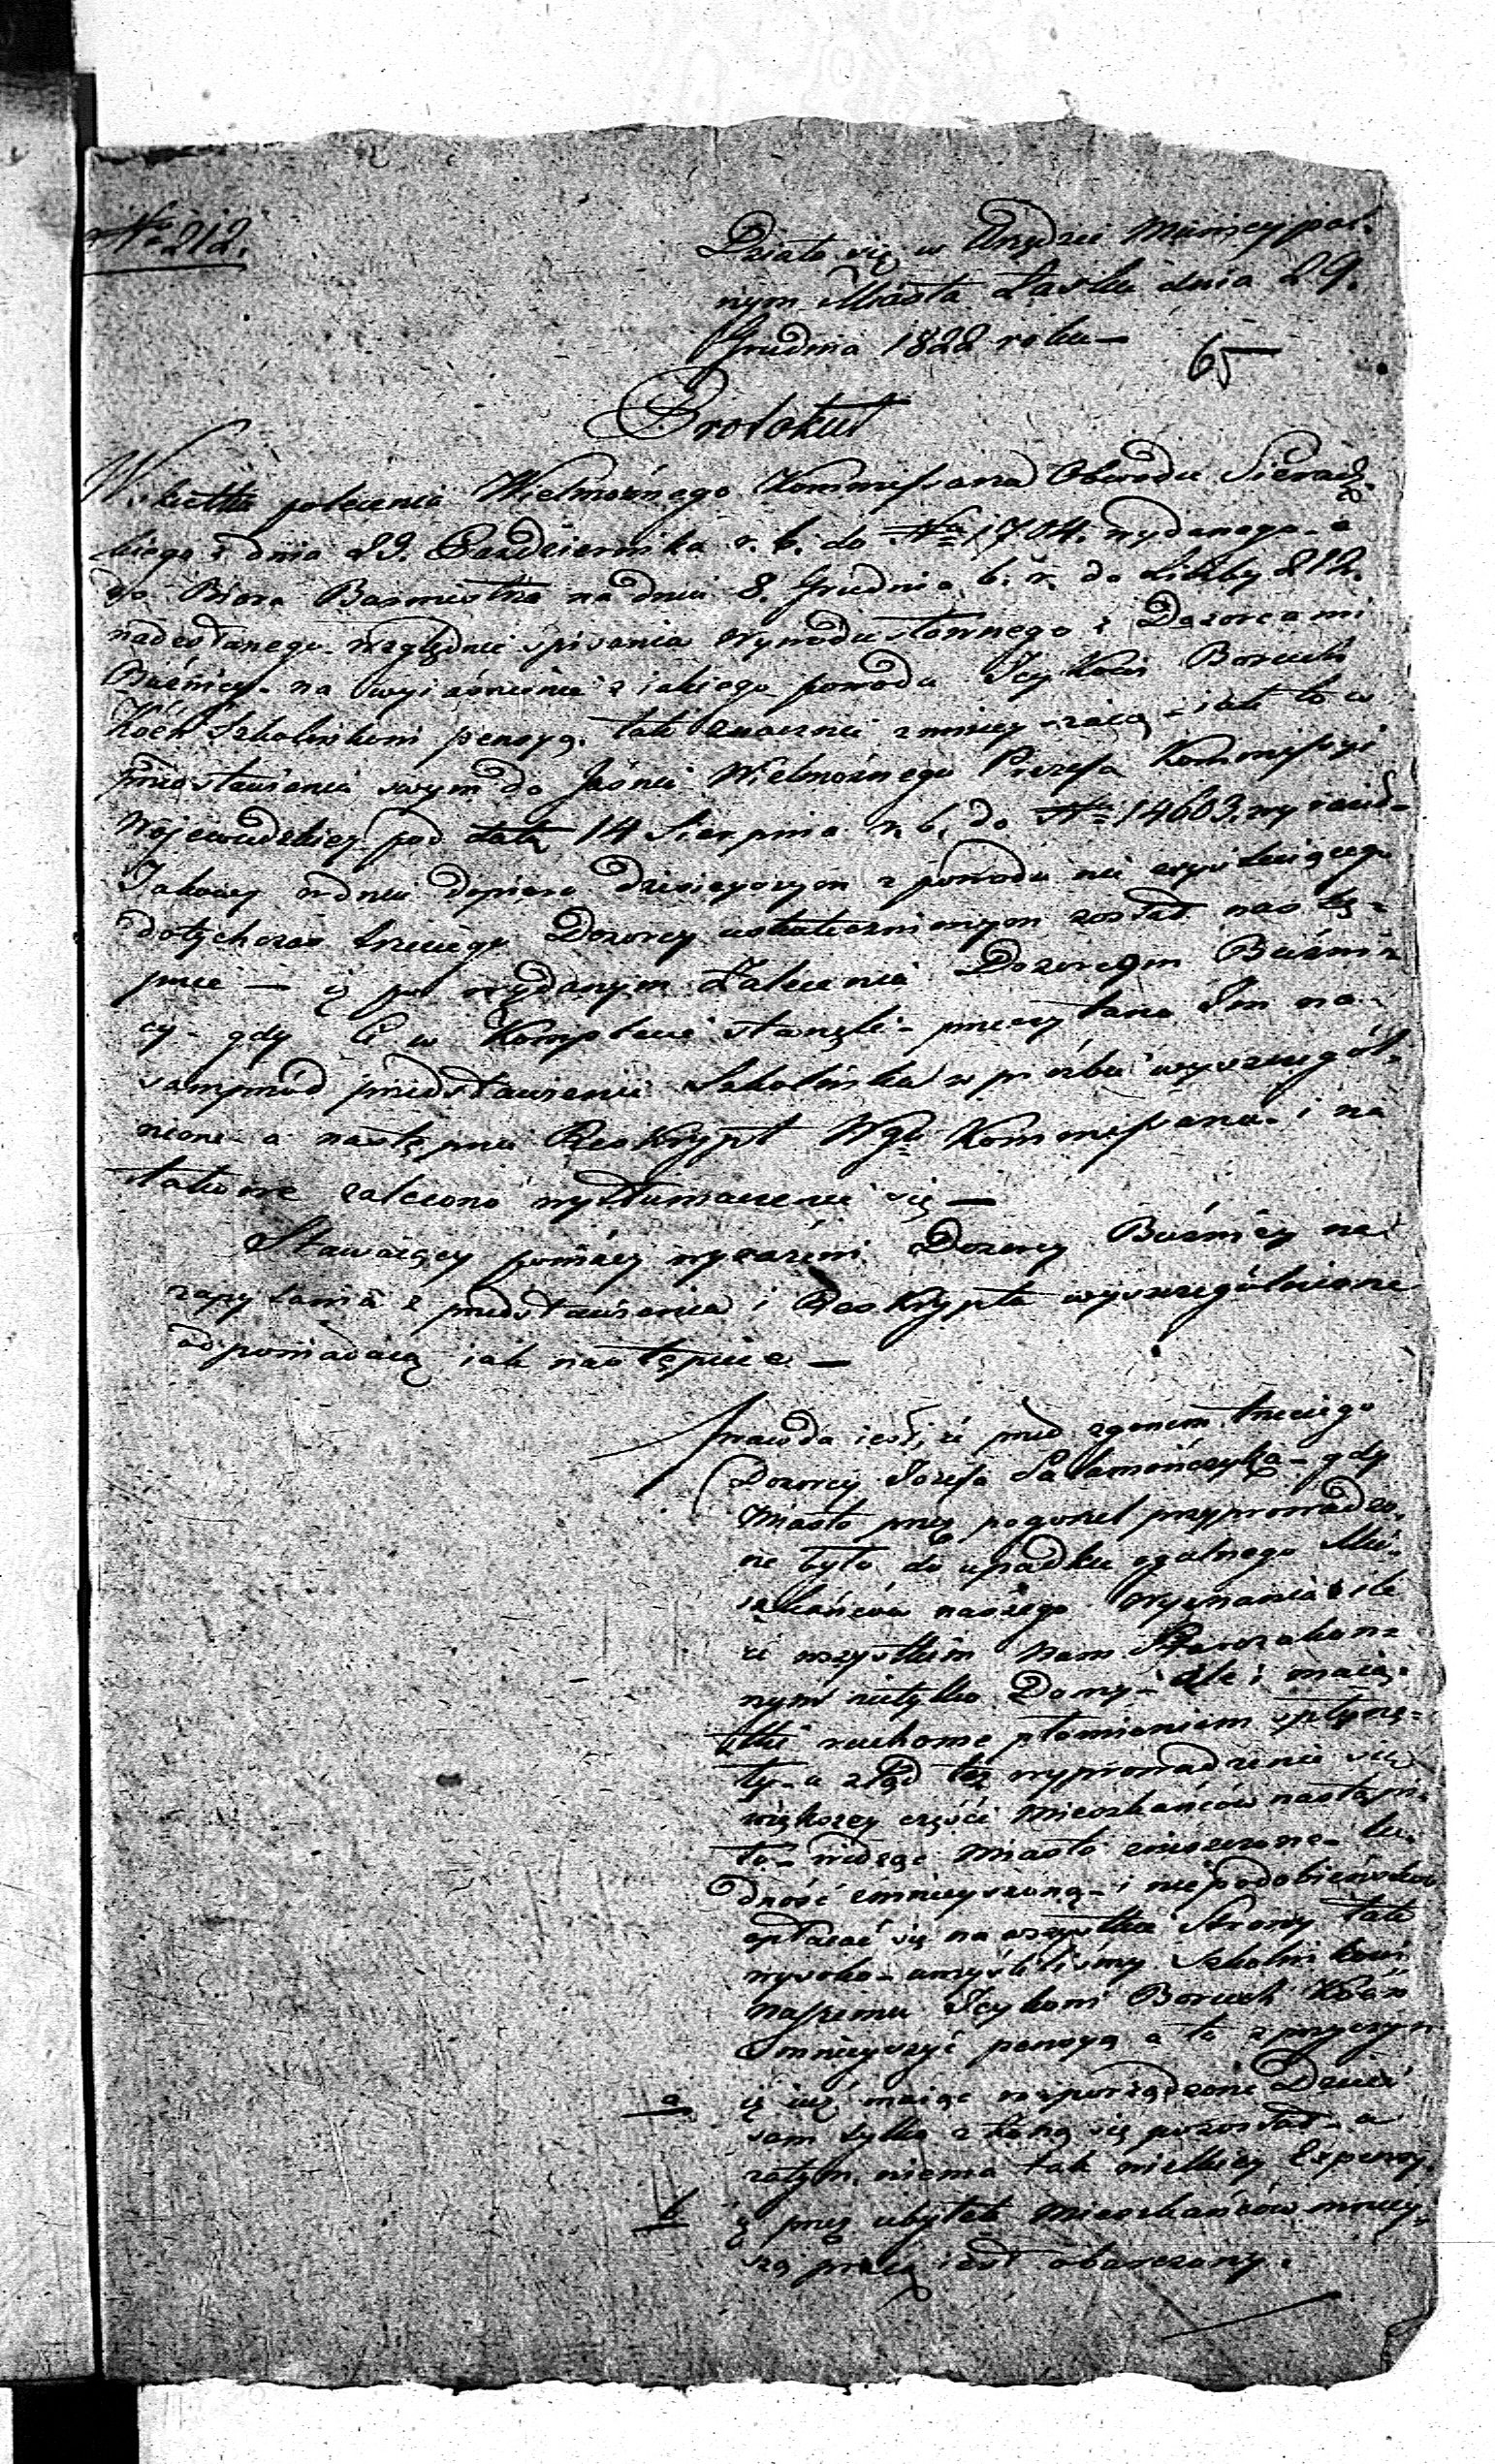 No 212.
Działo się w Urzędzie Municypal-
nym Miasta Łasku dnia 29.
Grudnia 1822 roku —
65
Protokuł
W skutku polecenia Wielmożnego Kommissarza Obwodu Sieradz-
kiego z dnia 29. Października r. b. do No 1704. wydanego - a
do Biora Burmistrza na dniu 8. Grudnia b. r. do Liczby 212.
nadesłanego - względnie spisania wywodu słownego z Dozorcami
Bużnicy - na wyiaśnienie z iakiego powodu Icykowi Boruch
Koén Szkolnikowi pensyą tak znacznie zmniey-szaią - iak to w
przedstawieniu swym do Jaśnie Wielmożnego Prezesa Kommissyi
Wojewodzkiey pod datą 14 Sierpnia r. b. do No 14603. wyraził -
Jakowy w dniu dopiero dzisieyszym z powodu nie exystuiącego
dotychczas trzeciego Dozorcy uskutecznionym został nastę-
pnie — iż po wydanym Zaleceniu Dozorcom Bużni-
cy - gdy Ci w Komplecie stanęli - przeczytano Im na-
samprzód przedstawienie Szkolnika w prożbie wyszczegól-
nione - a nastę pnie Reskrypt Wgo Kommissarza - i na
takowe zalecono wytłumaczenie się —
Stawaiący poniżey wyrażeni Dozorcy Bużnicy na
zapytania z przedstawienia i Reskryptu wyszczególnione
odpowiadaią iak następuie —
prawda iest, że przed zgonem trzeciego
Dozorcy Józefa Salamończyka - gdy
Miasto przez pogorzel przyprowadzo-
ne było do upadku ogulnego Mie-
szkańców naszego Wyznania ile
że wszystkim Nam Starozakon-
nym nietylko Domy - ale i maią-
tki ruchome płomieniem spłynę-
ły - a ztąd też wyprowadzenie się
większey części Mieszkańców nastąpi-
ło - widząc Miasto zniszczone - lu-
dność zmnieyszoną - i niepodobieństwo
opłacać się na wszystkie Strony tak
wysoko - umyśliliśmy Szkolnikowi
Naszemu Icykowi Boruch Koén
zmnieyszyć pensyą a to z przyczyn
a iż iuż maiąc rozporządzone Dzieci
sam tylko z Żoną się pozostał - a
zatym niema tak wielkiey Expensy.
b iż przez ubytek Mieszkańców mniey-
szą pracą iest obarczony.